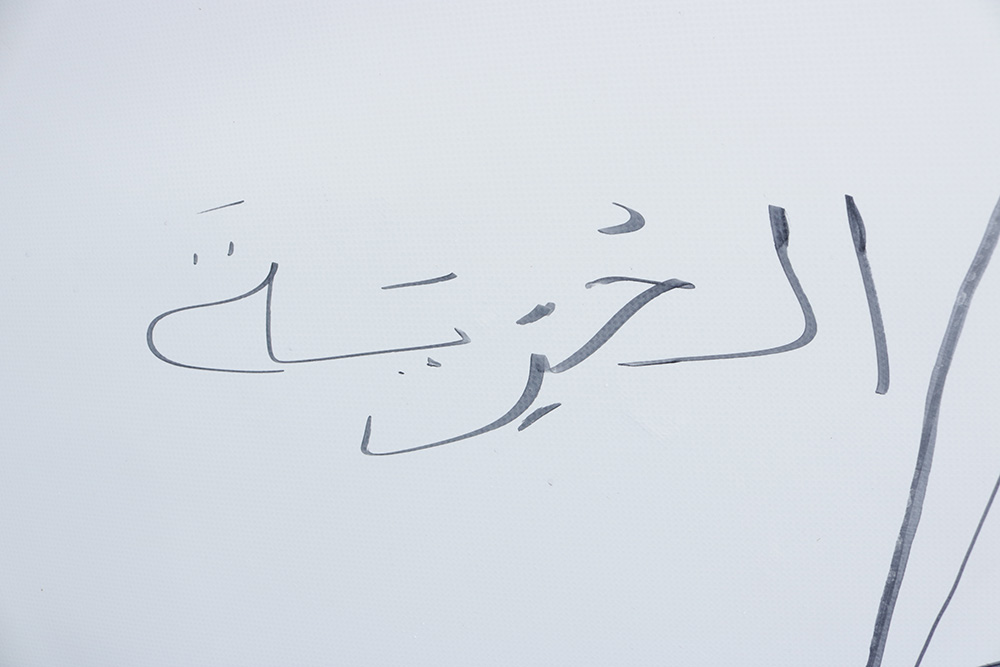 الحُرِّيَةَ